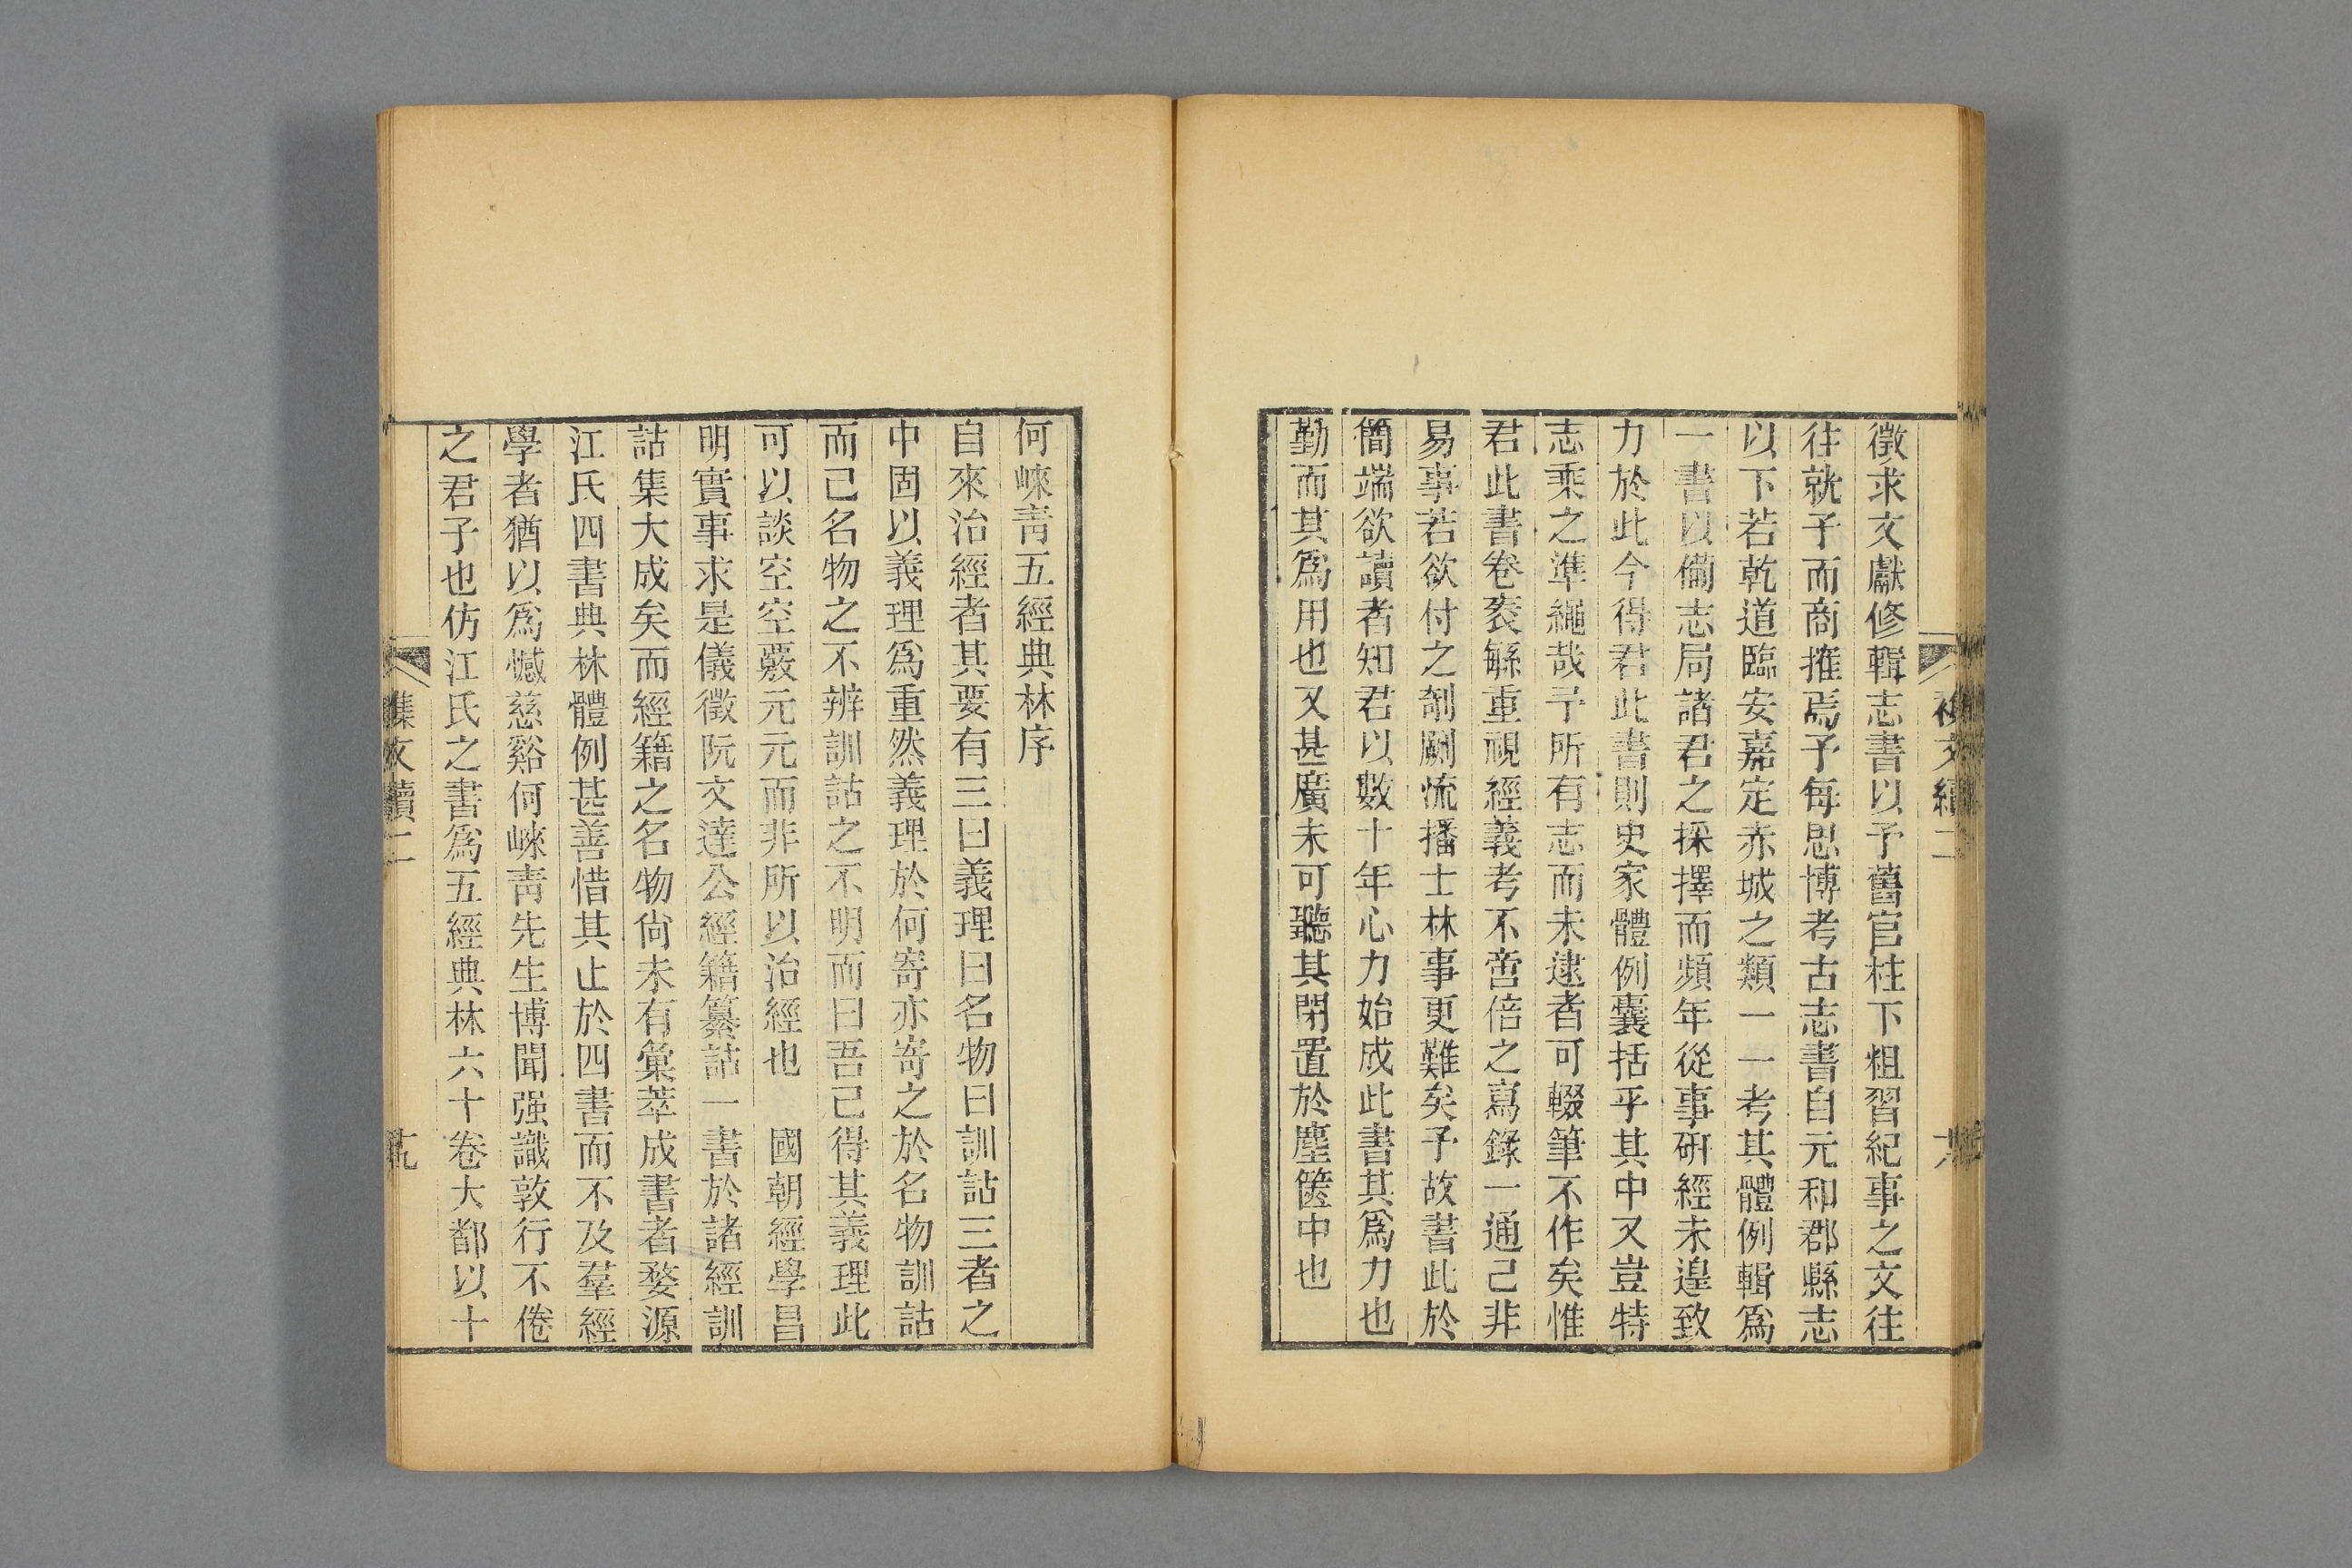 徵求文獻修輯志書以予舊官柱下粗習紀事之文往
往就予而商搉焉予每思博考古志書自元和郡縣志
以下若乾道臨安嘉定赤城之類一一考其體例輯爲
一書以備志局諸君之採擇而頻年從事硏經未遑致
力於此今得君此書則史家體例囊括乎其中又豈特
志乘之準繩哉予所有志而未逮者可輟筆不作矣惟
君此書卷袠緐重視經義考不啻倍之寫錄一通已非
易事若欲付之剞劂流播士林事更難矣予故書此於
簡端欲讀者知君以數十年心力始成此書其爲力也
勤而其爲用也又甚廣未可聽其閉置於塵篋中也
何崍靑五經典林序
自來治經者其要有三曰義理曰名物曰訓詁三者之
中固以義理爲重然義理於何寄亦寄之於名物訓詁
而已名物之不辨訓詁之不明而曰吾已得其義理此
可以談空空覈元元而非所以治經也　國朝經學昌
明實事求是儀徵阮文達公經籍纂詁一書於諸經訓
詁集大成矣而經籍之名物尙未有彙萃成書者婺源
江氏四書典林體例甚善惜其止於四書而不及羣經
學者猶以爲憾慈谿何崍靑先生博聞强識敦行不倦
之君子也仿江氏之書爲五經典林六十卷大都以十